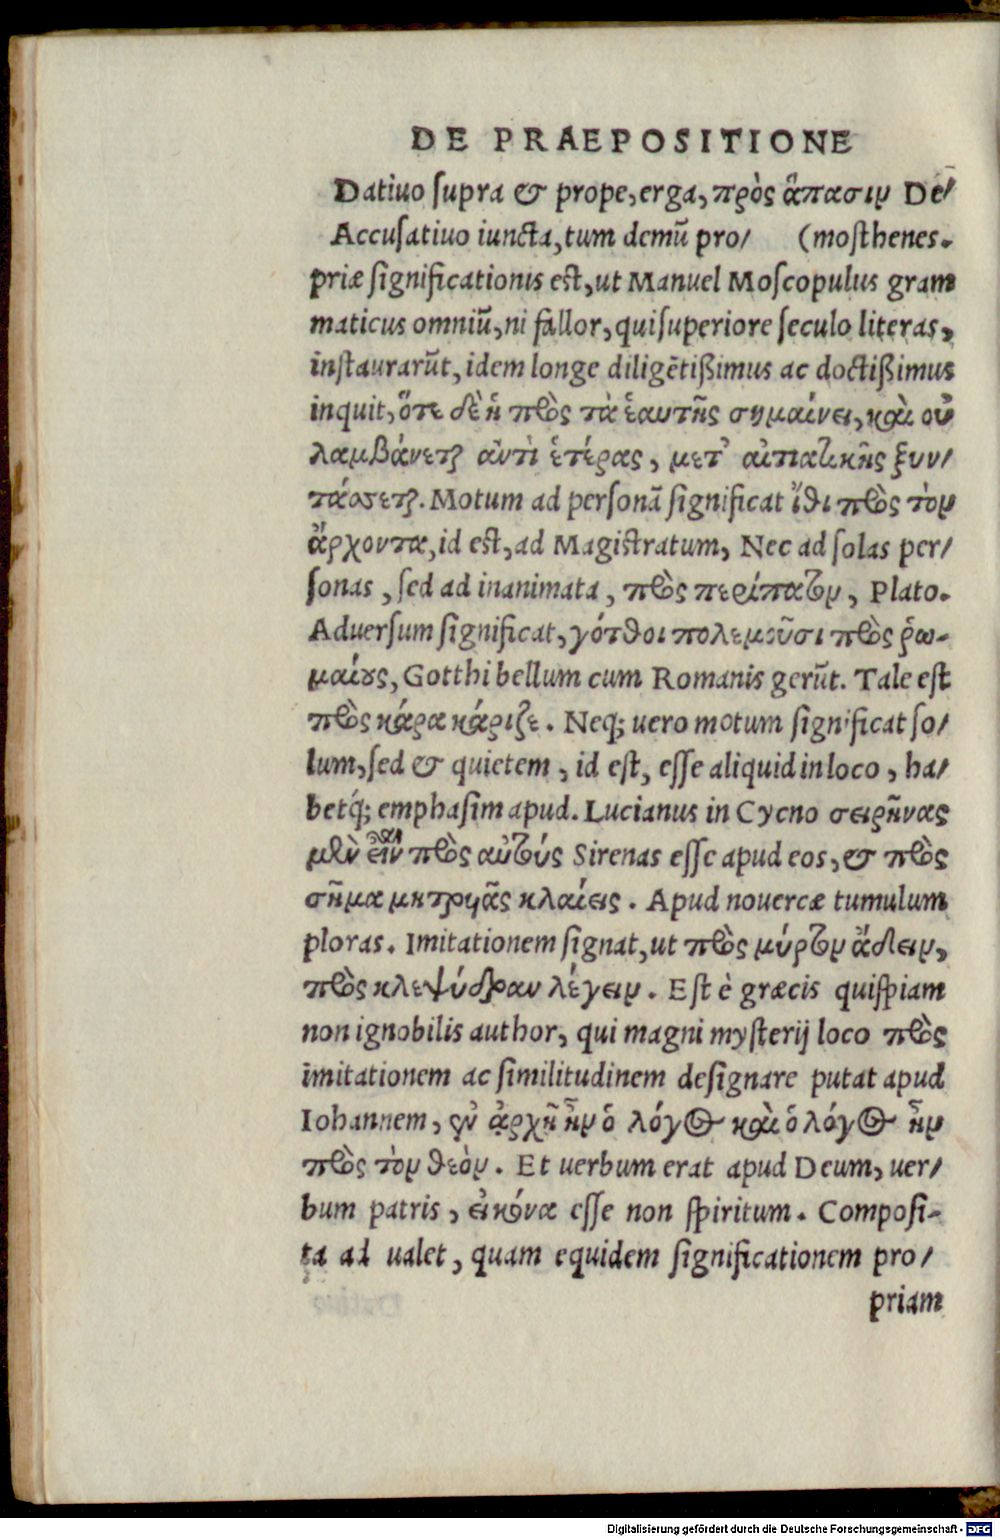 DE PRAEPOSITIONE
Datiuo supra & prope, erga, πρὸς ἅπασιν De/
Accusatiuo iuncta, tum demũ pro/ (mosthenes.
priæ significationis est, ut Manuel Moscopulus gram
maticus omniũ, ni fallor, qui superiore seculo literas,
instaurarũt, idem longe diligẽtißimus ac doctißimus
inquit, ὅτε δὲ ἡ πρὸς τὰ ἑαυτῆς σημαίνει, καὶ οὐ
λαμβάνεται ἀντὶ ἑτέρας, μετ᾽ αἰτιατικῆς ξυν/
τάσσεται. Motum ad personã significat ἴθι πρὸς τὸν
ἄρχοντα, id est, ad Magistratum, Nec ad solas per/
sonas, sed ad inanimata, πρὸς περίπατον, Plato.
Aduersum significat, γότθοι πολεμοῦσι πρὸς ῥω-
μαίους, Gotthi bellum cum Romanis gerũt. Tale est
πρὸς κάρα κάριζε. Neq; uero motum significat so/
lum, sed & quietem, id est, esse aliquid in loco, ha/
betq́; emphasim apud. Lucianus in Cycno σειρῆνας
μὲν εἶναι πρὸς αὐτούς Sirenas esse apud eos, & πρὸς
σῆμα μητρυιᾶς κλαίεις. Apud nouercæ tumulum
ploras. Imitationem signat, ut πρὸς μύρτον ἄδειν,
πρὸς κλεψύδραν λέγειν. Est è græcis quispiam
non ignobilis author, qui magni mysterij loco πρὸς
imitationem ac similitudinem designare putat apud
Iohannem, ἐν ἀρχῇ ἦν ὁ λόγος καὶ ὁ λόγος ἦν
πρὸς τὸν θεὸν. Et uerbum erat apud Deum, uer/
bum patris, εἰκόνα esse non spiritum. Composi-
ta ad ualet, quam equidem significationem pro/
priam
Digitalisierung gefördert durch die Deutsche Forschungsgemeinschaft - DFG